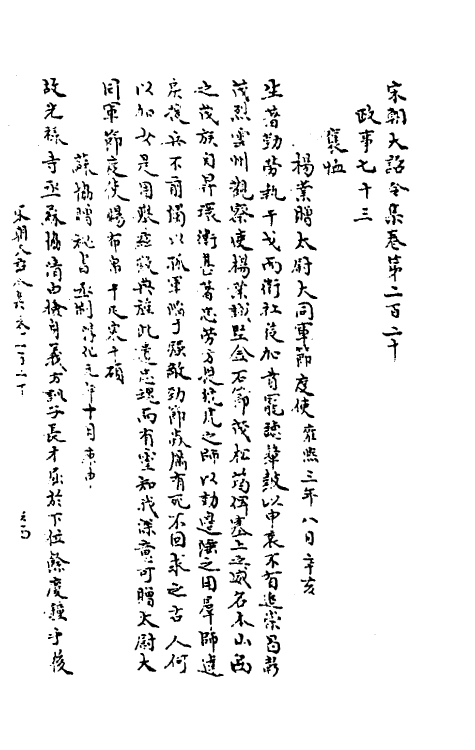 宋朝大詔令集卷第二百二十
政事七十三
褒恤
楊業贈太尉大同軍節度使雍熙三年八月辛亥
坐著勤勞執干戈而衛社稷加首寵聽鼙鼓以申哀不有追崇曷彰
茂烈雲州觀察使楊業誠堅金石節茂松筠倜塞上之威名本山西
之茂族自昇環衛甚著忠勞方畏捻虎之師以勤邊陲之用羣師違
戾援兵不前獨以孤軍陷于强敵勁節厲有死不回求之古人何
以加此是用敷茲徽典旌此遺忠魂而有靈知我深意可贈太尉大
同軍節度使賜布帛千疋粟千碩
蘇協贈秘書丞制淳化元年十月庚申
故光祿寺丞蘇協清白持身義方訓子長才屈於下位餘慶鍾于後
宋朝大詔令集卷二百二十